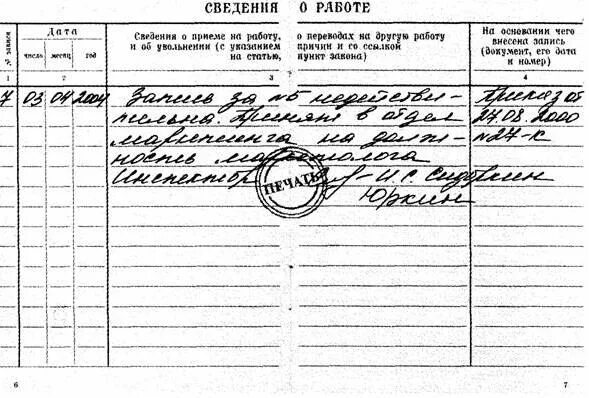 СВЕДЕНИЯ О РАБОТЕ
№ записи
Дата
число месяц год
Сведения о приеме на работу, о переводах на другую работу
и об увольнении (с указанием причин и со ссылкой
на статью, пункт закона)
На основании чего
внесена запись
(документ, его дата
и номер)
1 2 3 4
7 03 04 2004 Запись за №5 недействи- Приказ от
тельна. Принят в отдел 27.08.2000
маркетинга на долж- №27-к
ность маркетолога
Инспектор И.С. Сидоркин
ПЕЧАТЬ
Юркин
6 7